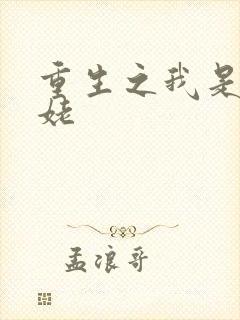 重生之我是
姥
孟浪哥